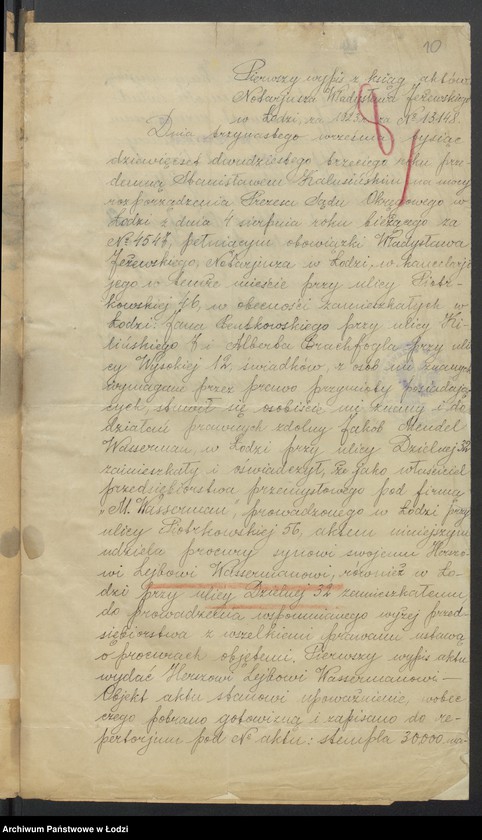 10
Pierwszy wypis z ksiąg aktów
Notarjusza Władysława Jeżewskiego
w Łodzi, za 1923 r. za № 13148.
Dnia trzynastego września tysiąc
dziewięćset dwudziestego trzeciego roku prze-
demną Stanisławem Kalusińskim, na mocy
rozporządzenia Prezesa Sądu Okręgowego w
Łodzi z dnia 4 sierpnia roku bieżącego za
№ 4547, pełniącym obowiązki Władysława
Jeżewskiego, Notarjusza w Łodzi, w kancelarji
jego w temże mieście przy ulicy Piotr-
kowskiej 46, w obecności zamieszkałych w
Łodzi: Jana Pentkowskiego przy ulicy Ki-
lińskiego 8 i Alberta Brachfogla przy uli
cy Wysokiej 12, świadków, z osób mi znanych
wymagane przez prawo przymioty posiadają-
cych, stawił się osobiście, mi znany i do
działań prawnych zdolny Jakób Mendel
Wasserman, w Łodzi przy ulicy Dzielnej 32
zamieszkały i oświadczył, że jako właściciel
przedsiębiorstwa przemysłowego pod firmą
"M. Wasserman, prowadzonego w Łodzi przy
ulicy Piotrkowskiej 56, aktem niniejszym
udziela prokury synowi swojemu Herszo-
wi Lejbowi Wassermanowi, również w Ło-
dzi przy ulicy Dzielnej 32 zamieszkałemu
do prowadzenia wspomnianego wyżej przed-
siębiorstwa z wszelkiemi prawami ustawą
o prokurach objętemi. Pierwszy wypis aktu
wydać Herszowi Lejbowi Wassermanowi —
Objekt aktu stanowi upoważnienie, wobec
czego pobrano gotowizną i zapisano do re-
pertorjum pod № aktu: stempla 30,000 ma-
Archiwum Państwowe w Łodzi